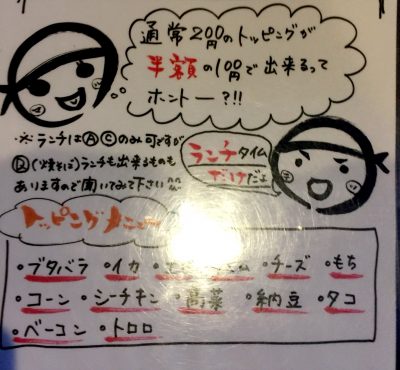 通常200円のトッピングが
半額の100円で出来るって
ホントー?!!
※ランチはⒶⒸのみ可ですが
Ⓑ(焼そば)ランチも出来るものも
ありますので聞いてみて下さい
ランチタイム
だけだよ
トッピングメニュー
・ブタバラ ・イカ ・チーズ ・もち
・コーン ・シーチキン ・高菜 ・納豆 ・タコ
・ベーコン ・トロロ